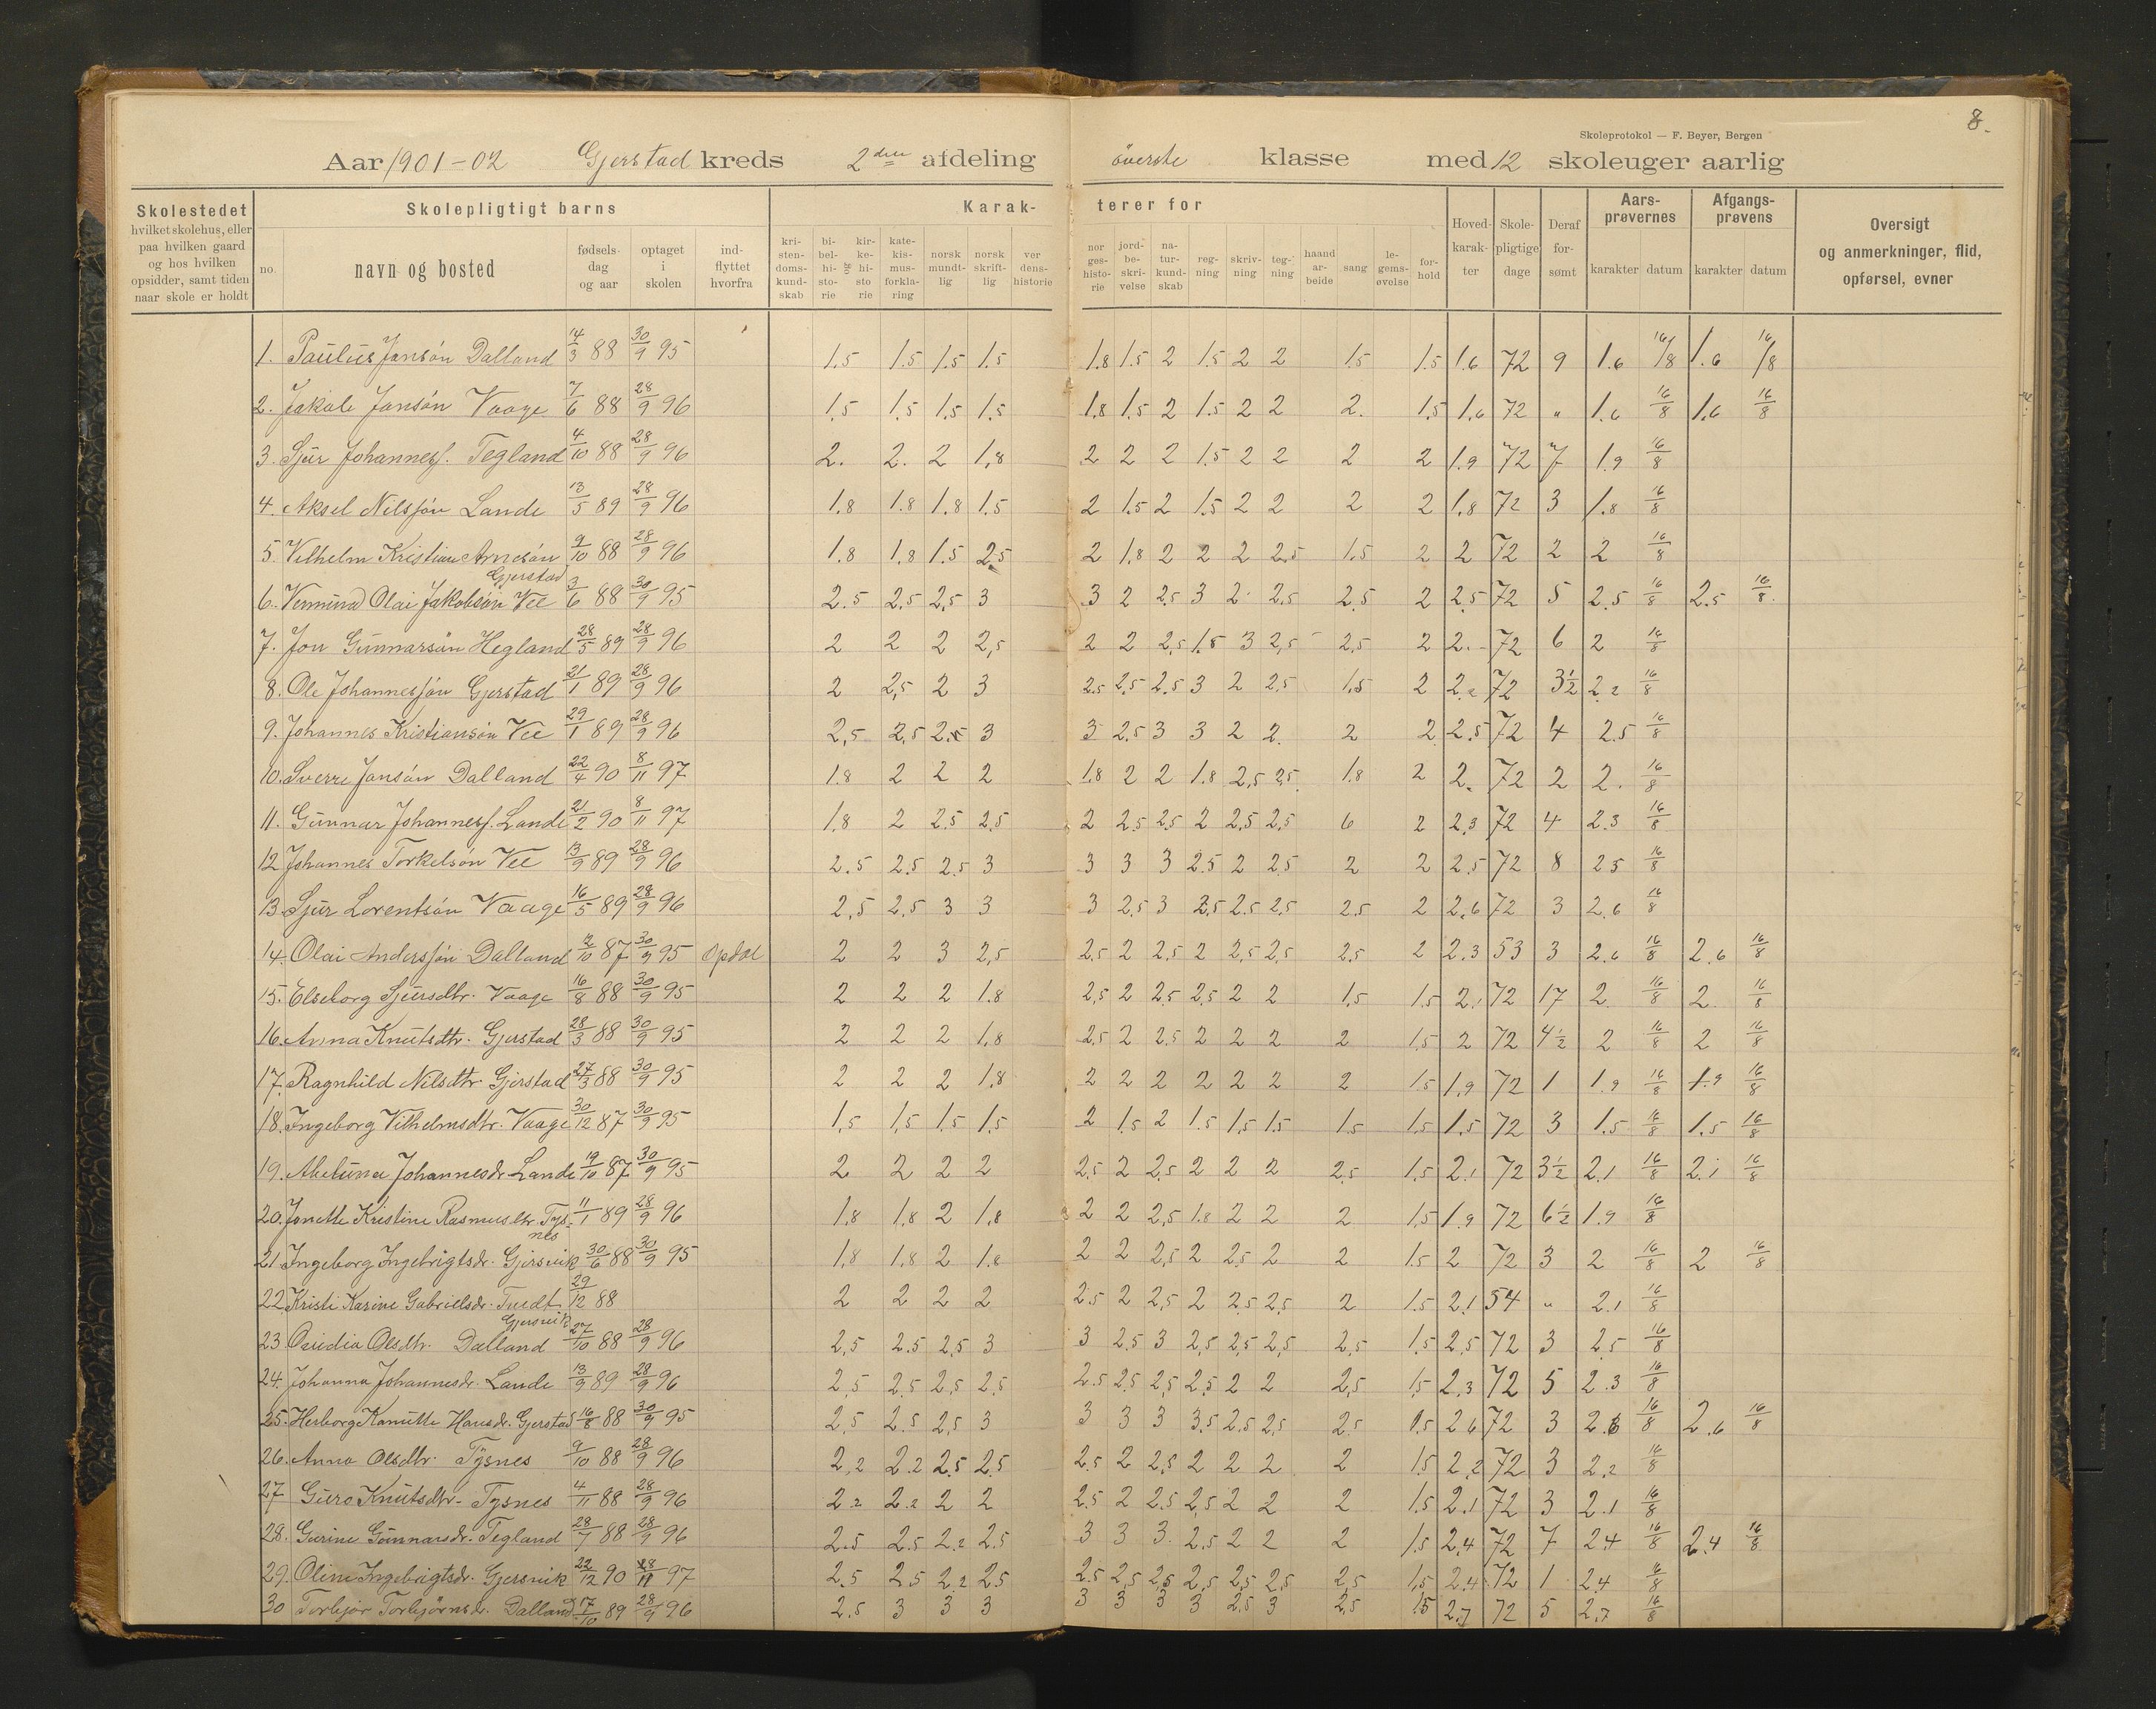 8.
Skoleprotokol — F. Beyer, Bergen
Aar 1901-02 Gjerstad kreds 2den afdeling överste klasse med 12 skoleuger aarlig
Skolestedet hvilket skolehus, eller paa hvilken gaard og hos hvilken opsidder, samt tiden naar skole er holdt
Skolepligtigt barns
no. navn og bosted fødsels-dag og aar optaget i skolen ind-flyttet hvorfra
Karak- terer for
kri-sten-doms-kund-skab bi-bel-hi-sto-rie og kir-ke-hi-sto-rie kate-kis-mus-forkla-ring norsk mundt-lig norsk skrift-lig ver dens-historie nor ges-histo-rie jord-be-skri-velse na-tur-kund-skab reg-ning skriv-ning teg-ning haand ar-beide sang le-gems-øvelse for-hold
Hoved-karak-ter Skole-pligtige dage Deraf for-sømt
Aars-prøvernes karakter datum
Afgangs-prøvens karakter datum
Oversigt og anmerkninger, flid, opførsel, evner
1. Paulus Jansön Dalland 14/3 88 30/9 95 1.5 1.5 1.5 1.5 1.8 1.5 2 1.5 2 2 1.5 1.5 1.6 72 9 1.6 16/8 1.6 16/8
2. Jakob Jansön Vaage 7/6 88 28/9 96 1.5 1.5 1.5 1.5 1.8 1.5 2 1.5 2 2 2. 1.5 1.6 72 " 1.6 16/8 1.6 16/8
3. Sjur Johannesf. Tegland 4/10 88 28/9 96 2. 2. 2 1,8 2 2 2 1.5 2 2 2 2 1.9 72 7 1.9 16/8
4. Aksel Nilssön Lande 13/5 89 28/9 96 1.8 1.8 1.8 1.5 2 1.5 2 1.5 2 2 2 2 1.8 72 3 1.8 16/8
5. Vilhelm Kristian Arnesön Gjerstad 9/10 88 28/9 96 1.8 1.8 1.5 2.5 2 1.8 2 2 2 2.5 1.5 2 2 72 2 2 16/8
6. Vemund Olai Jakobsön Vee 3/6 88 30/9 95 2.5 2.5 2.5 3 3 2 2.5 3 2 2.5 2.5 2 2.5 72 5 2.5 16/8 2.5 16/8
7. Jon Gunnarsön Hegland 28/5 89 28/9 96 2 2 2 2,5 2 2 2,5 1.8 3 2,5 2,5 2 2. 72 6 2 16/8
8. Ole Johannessön Gjerstad 21/1 89 28/9 96 2 2,5 2 3 2.5 2,5 2.5 3 2 2.5 1.5 2 2.2 72 3½ 2.2 16/8
9. Johannes Kristiansön Vee 29/1 89 28/9 96 2,5 2,5 2.5 3 3 2.5 3 3 2 2 2 2 2.5 72 4 2.5 16/8
10. Sverre Jansön Dalland 22/4 90 8/11 97 1.8 2 2 2 1.8 2 2 1.8 2,5 2.5 1.8 2 2. 72 2 2. 16/8
11. Gunnar Johannesf. Lande 21/2 90 8/11 97 1.8 2 2.5 2.5 2 2.5 2.5 2 2,5 2,5 6 2 2.3 72 4 2.3 16/8
12 Johannes Torkelsön Vee 13/9 89 28/9 96 2.5 2.5 2.5 3 3 3 3 2.5 2 2.5 2 2 2.5 72 8 25 16/8
13. Sjur Lorentsön Vaage 16/5 89 28/9 96 2,5 2,5 3 3 3 2.5 3 2,5 2.5 2,5 2.5 2 2.6 72 3 2.6 16/8
14. Olai Anderssön Dalland 12/10 87 30/9 95 Opdal 2 2 3 2,5 2,5 2 2.5 2 2,5 2,5 2,5 2 2.3 53 3 2.6 16/8 2.6 16/8
15. Elseborg Sjursdtr. Vaage 16/8 88 30/9 95 2 2 2 1.8 2,5 2 2.5 2,5 2 2 1.5 1.5 2.1 72 17 2. 16/8 2. 16/8
16. Anna Knutsdtr. Gjerstad 28/3 88 30/9 95 2 2 2 1.8 2.5 2 2.5 2 2 2 2 1.5 2 72 4½ 2 16/8 2 16/8
17. Ragnhild Nilsdtr. Gjerstad 27/3 88 30/9 95 2 2 2 1,8 2 2 2 2 2 2 2 1.5 1.9 72 1 1.9 16/8 1.9 16/8
18. Ingeborg Vilhelmsdtr. Vaage 30/12 87 30/9 95 1,5 1,5 1.5 1.5 2 1.5 2 1.5 1,5 1.5 1.5 1.5 1.5 72 3 1.5 16/8 1.5 16/8
19. Abeluna Johannesdr. Lande 19/10 87 30/9 95 2 2 2 2 2.5 2 2.5 2 2 2 2.5 1.5 2.1 72 3½ 2.1 16/8 2.1 16/8
20. Jonette Kristine Rasmusdtr. Tysnes 11/1 89 28/9 96 1.8 1.8 2 1.8 2 2 2,5 1.8 2 2 2 1.5 1.9 72 6½ 1.9 16/8
21. Ingeborg Ingebrigtsdr. Gjersvik 30/6 88 30/9 95 1.8 1.8 2 1.8 2 2 2,5 2 2.5 2 2 1.5 2 72 3 2 16/8 2 16/8
22 Kristi Karine Gabrielsdr. Tvedt. Gjersvik 29/12 88 2 2 2 2 2.5 2 2,5 2 2.5 2.5 2 1.5 2.1 54 " 2.1 16/8
23. Ovidia Olsdtr. Dalland 27/10 88 28/9 96 2,5 2.5 2.5 3 3 2,5 3 2,5 2,5 2,5 2,5 1,5 2.5 72 3 2.5 16/8
24. Johanna Johannesdr. Lande 13/9 89 28/9 96 2,5 2.5 2.5 2.5 2.5 2.5 2.5 2.5 2 2 2,5 1.5 2.3 72 5 2.3 16/8
25. Herborg Kanutte Hansdr. Gjerstad 16/8 88 30/9 95 2,5 2.5 2,5 3 3 3 3 3.5 2.5 2.5 2.5 1.5 2.6 72 3 2.6 16/8 2.6 16/8
26. Anna Olsdtr. Tysnes 9/10 88 28/9 96 2,2 2.2 2.5 2.5 2.5 2 2,5 2 2 2 2 1.5 2.2 72 3 2.2 16/8
27 Guro Knutsdtr. Tysnes 4/11 88 28/9 96 2.2 2.2 2 2 2.5 2 2.5 2,5 2 2 2 1.5 2.1 72 3 2.1 16/8
28. Gurine Gunnarsdr. Tegland 28/7 88 28/9 96 2.5 2.5 2.2 2.5 3 3 3. 2.5 2 2 2 1.5 2.4 72 7 2.4 16/8 2.4 16/8
29. Oline Ingebrigtsdr. Gjersvik 22/12 90 97 2.5 2.5 2.2 2.5 2.5 2,5 2,5 2,5 2,5 2,5 2,5 1.5 2.4 72 1 2.4 16/8
30 Torbjör Torbjörnsdr. Dalland 17/10 89 28/9 96 2.5 3 3 3 3 3 3 3 2.5 3 2.5 1.5 2.7 72 5 2.7 16/8